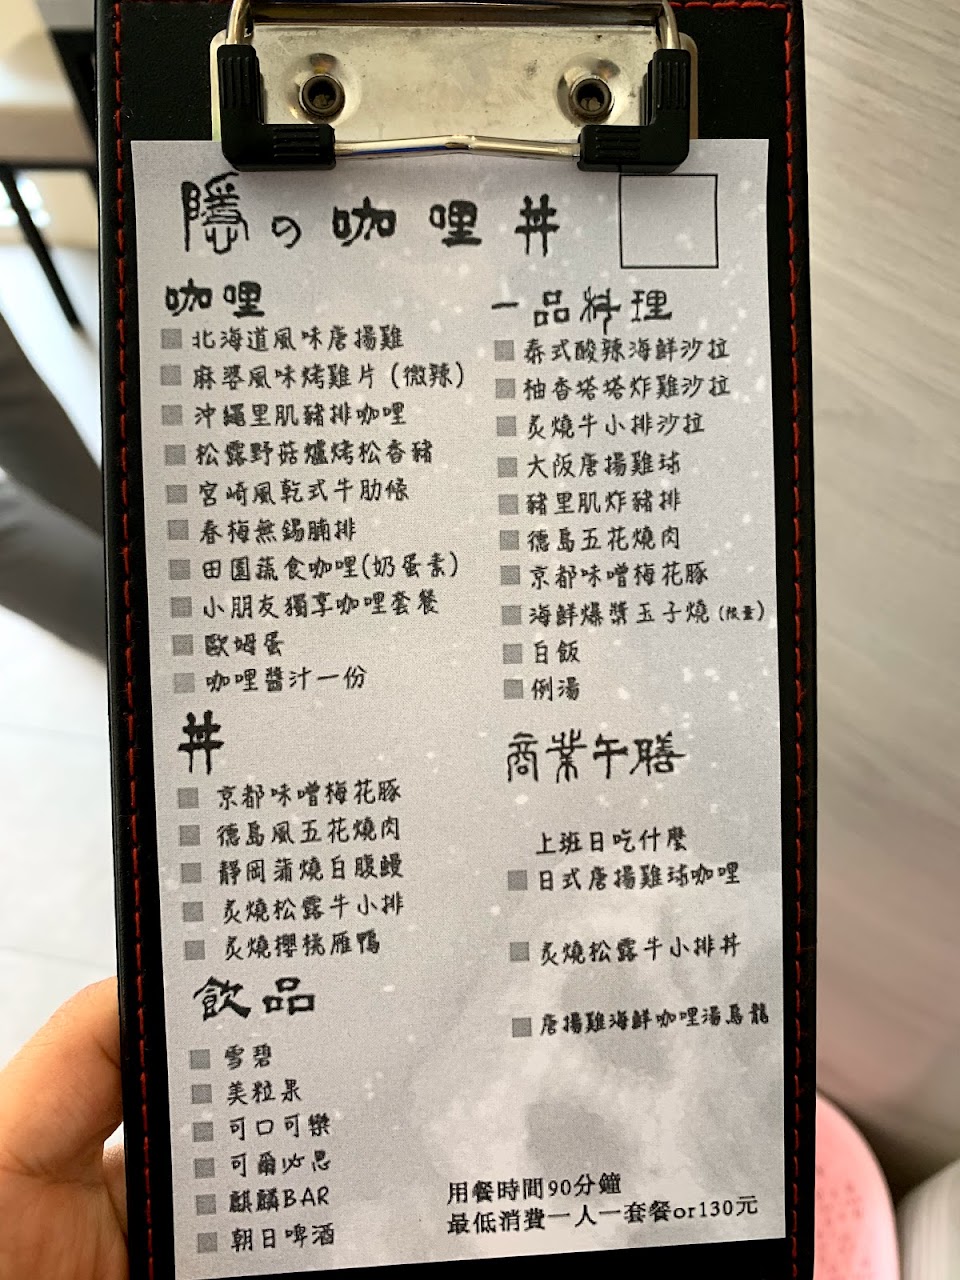 隱の咖哩丼
咖哩
北海道風味唐揚雞
麻婆風味烤雞片(微辣)
沖繩里肌豬排咖哩
松露野菇爐烤松香豬
宮崎風乾式牛肋條
春梅無錫腩排
田園蔬食咖哩(奶蛋素)
小朋友獨享咖哩套餐
歐姆蛋
咖哩醬汁一份
丼
京都味噌梅花豚
德島風五花燒肉
靜岡蒲燒白腹鰻
炙燒松露牛小排
炙燒櫻桃雁鴨
飲品
雪碧
美粒果
可口可樂
可爾必思
麒麟BAR
朝日啤酒
一品料理
泰式酸辣海鮮沙拉
柚香塔塔炸雞沙拉
炙燒牛小排沙拉
大阪唐揚雞球
豬里肌炸豬排
德島五花燒肉
京都味噌梅花豚
海鮮爆漿玉子燒(限量)
白飯
例湯
商業午膳
上班日吃什麼
日式唐揚雞球咖哩
炙燒松露牛小排丼
唐揚雞海鮮咖哩湯烏龍
用餐時間90分鐘
最低消費一人一套餐or130元